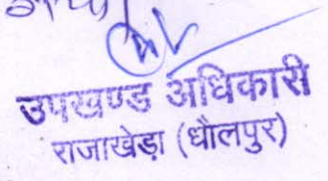 उपखण्ड अधिकारी
राजाखेड़ा (धौलपुर)